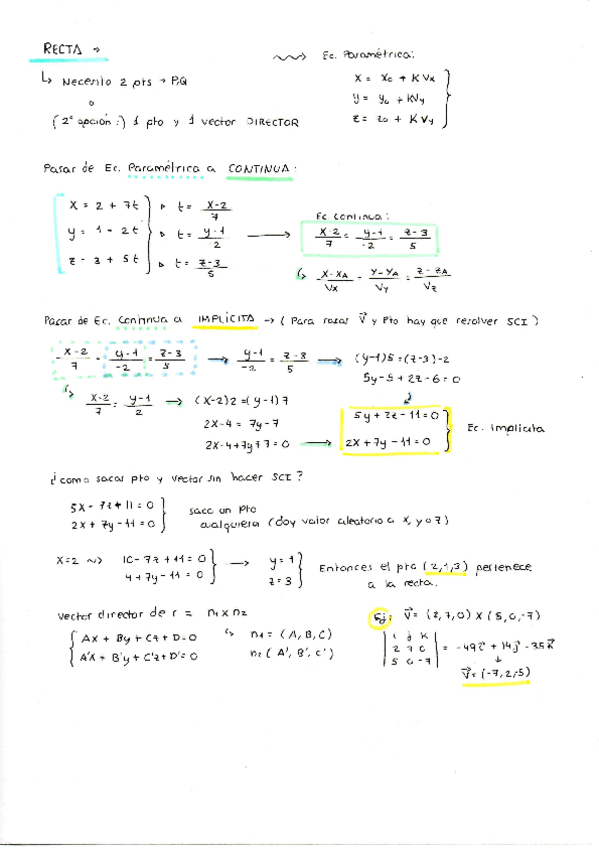 RECTA →
↳ Necesito 2 pts → P,Q
o
(2ª opción:) 1 pto y 1 vector DIRECTOR
Ec. Paramétrica:
X = X₀ + K Vx
y = y₀ + KVy
z = z₀ + K Vy
Pasar de Ec. Paramétrica a CONTINUA:
X = 2 + 7t → t = X-2 / 7
y = 1 - 2t → t = y-1 / 2
z - 3 + 5t → t = z-3 / 5
Ec. Continua:
X-2 / 7 = y-1 / -2 = z-3 / 5
↳ X-XA / Vx = Y-YA / Vy = z-zA / Vz
Pasar de Ec. Continua a IMPLÍCITA → (Para sacar V⃗ y Pto hay que resolver SCI)
X-2 / 7 = y-1 / -2 = z-3 / 5 → y-1 / -2 = z-3 / 5 → (y-1)5 = (z-3)-2
5y-5+2z-6=0
↳ X-2 / 7 = y-1 / 2 → (X-2)2=(y-1)7
2X-4 = 7y-7
2X-4+7y+7=0 →
5y+2z-11=0
2X+7y-11=0
Ec. Implícita
¿Como sacas pto y vector sin hacer SCI?
5X-7z+11=0
2X+7y-11=0
saco un pto
cualquiera (doy valor aleatorio a X, y o z)
X=2 → 10-7z+11=0
4+7y-11=0
→ y=1
z=3
Entonces el pto (2,1,3) pertenece
a la recta.
Vector director de r = n₁ x n₂
AX + By + Cz + D=0
A'X + B'y + C'z + D'=0
↳ n₁ = (A, B, C)
n₂ (A', B', C')
Ej: V⃗ = (2,7,0) X (5,0,-7)
i j K
2 7 0
5 0 -7
= -49i⃗ + 14j⃗ - 35K⃗
↓
V⃗=(-7,2,-5)